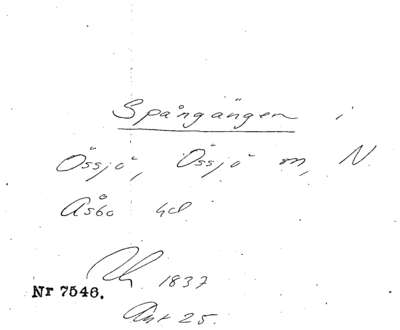 Spångängen i
Össjö, Össjö m, N.
Åsbo hd
Uh 1837
Nr 7546.
Akt 25.